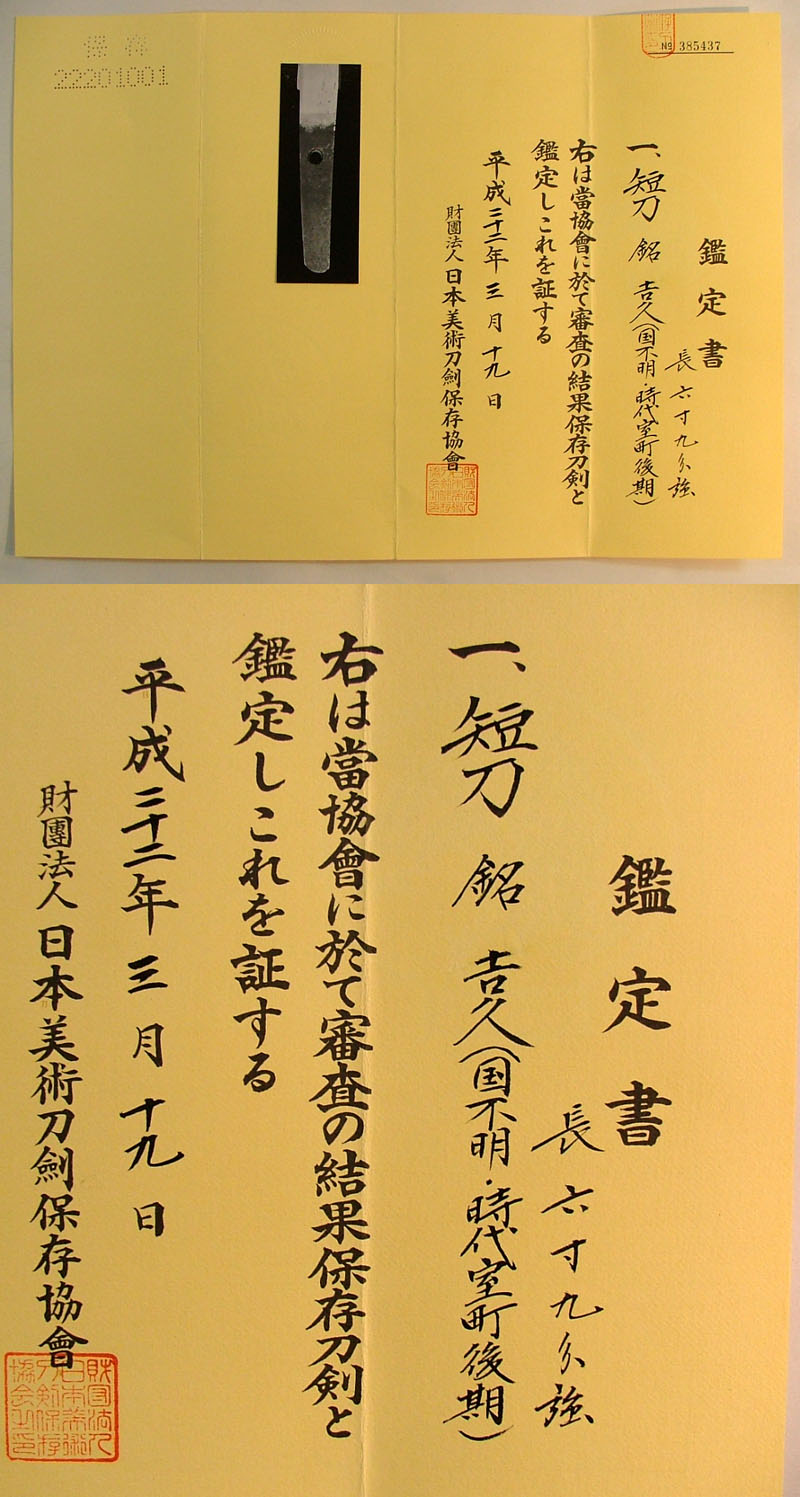 保存
22201001
№ 385437
鑑定書
一、短刀 銘 吉久(国不明・時代室町後期)
長六寸九分強
右は當協會に於て審査の結果保存刀剣と
鑑定しこれを証する
平成二十二年三月十九日
財團法人日本美術刀劍保存協會
鑑定書
一、短刀 銘 吉久(国不明・時代室町後期)
長六寸九分強
右は當協會に於て審査の結果保存刀剣と
鑑定しこれを証する
平成二十二年三月十九日
財團法人日本美術刀劍保存協會